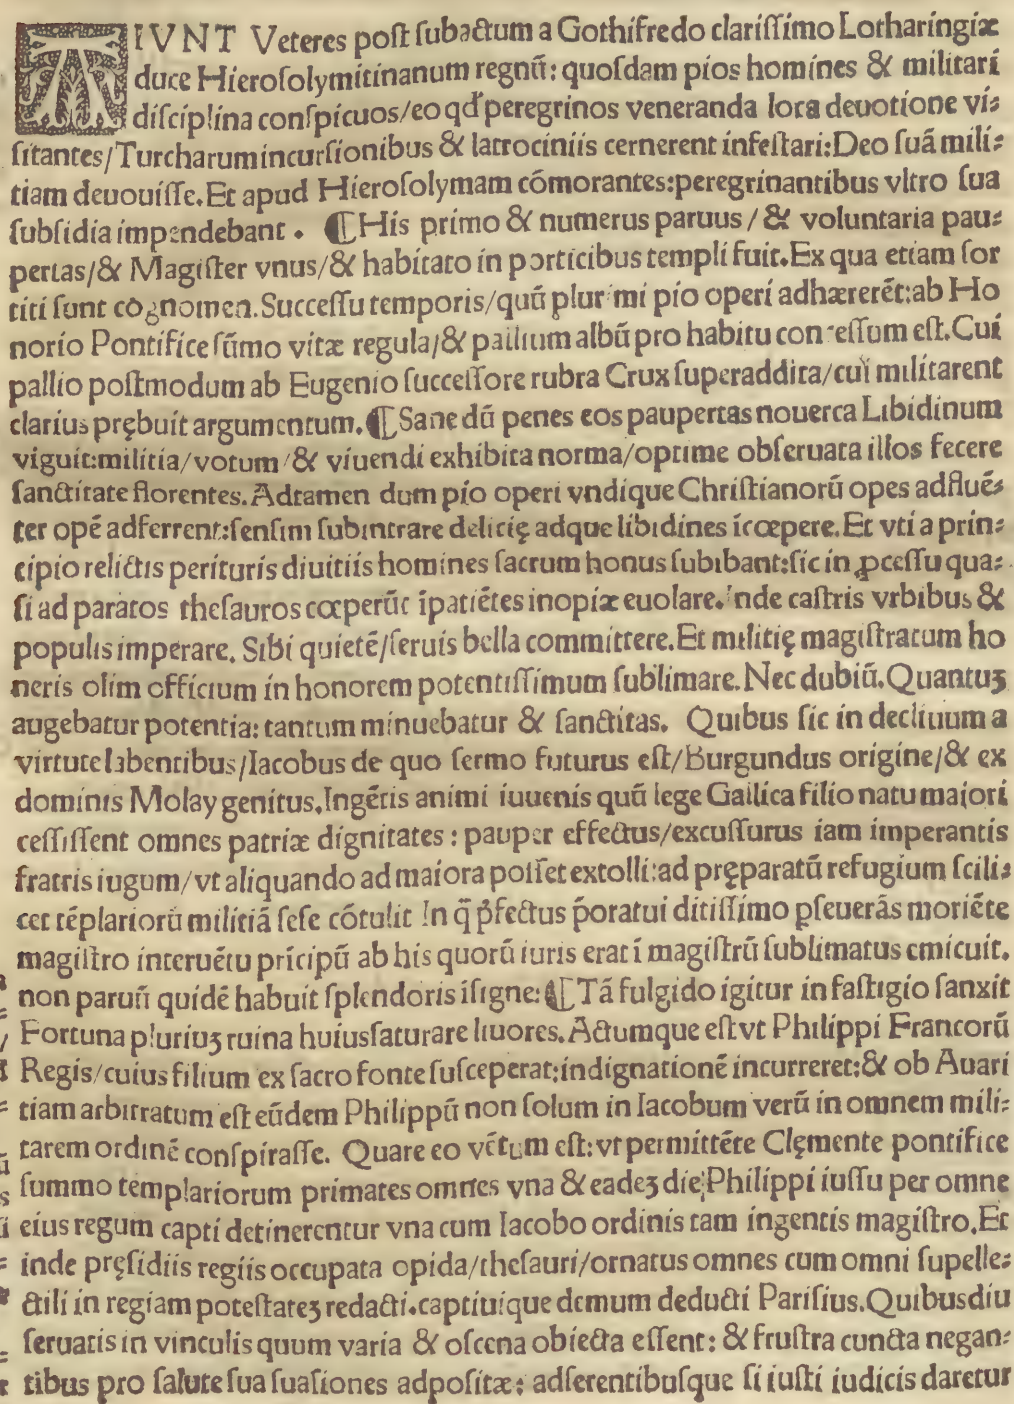 AIVNT Veteres poſt ſubactum a Gothifredo clariſſimo Lotharingiæ
duce Hieroſolymitinanum regnū: quoſdam pios homines & militari
diſciplina conſpicuos/eo qď peregrinos veneranda lora deuotione vi⸗
ſitantes/Turcharum incurſionibus & latrociniis cernerent infeſtari:Deo ſuā mili⸗
tiam deuouiſſe.Et apud Hieroſolymam cōmorantes:peregrinantibus vltro ſua
ſubſidia impendebant . ¶His primo & numerus paruus / & voluntaria pau⸗
pertas/& Magiſter vnus/& habitato in porticibus templi fuit.Ex qua etiam ſor
titi ſunt cognomen.Succeſſu temporis/quū plurimi pio operi adhærerēt:ab Ho
norio Pontifice ſūmo vitæ regula/& pallium albū pro habitu conceſſum eſt.Cui
pallio poſtmodum ab Eugenio ſucceſſore rubra Crux ſuperaddita/cui militarent
clarius prębuit argumentum.¶Sane dū penes eos paupertas nouerca Libidinum
viguit:militia/votum/& viuendi exhibita norma/optime obſeruata illos fecere
ſanctitate florentes.Adtamen dum pio operi vndique Chriſtianorū opes adfluē⸗
ter opē adferrent:ſenſim ſubintrare delicię adque libidines icœpere.Et vti a prin⸗
cipio relictis perituris diuitiis homines ſacrum honus ſubibant:ſic in ꝓceſſu qua⸗
ſi ad paratos theſauros cœperūt īpatiētes inopiæ euolare.Inde caſtris vrbibus &
populis imperare. Sibi quietē/ſeruis bella committere.Et militię magiſtratum ho
neris olim officium in honorem potentiſſimum ſublimare.Nec dubiū.Quantuʒ
augebatur potentia: tantum minuebatur & ſanctitas. Quibus ſic in decliuum a
virtute labentibus/Iacobus de quo ſermo futurus eſt/Burgundus origine/& ex
dominis Molay genitus.Ingētis animi iuuenis quū lege Gallica filio natu maiori
ceſſiſſent omnes patriæ dignitates : pauper effectus/excuſſurus iam imperantis
fratris iugum/vt aliquando ad maiora poſſet extolli:ad pręparatū refugium ſcili⸗
cet tēplariorū militiā ſeſe cōtulit In q̄ p̄fectus p̄oratui ditiſſimo ꝑſeuerās moriēte
magiſtro interuētu prīcipū ab his quorū iuris erat ī magiſtrū ſublimatus emicuit.
non paruū quidē habuit ſplendoris iſigne:¶Tā fulgido igitur in faſtigio ſanxit
Fortuna pluriuʒ ruina huius ſaturare liuores.Actumque eſt vt Philippi Francorū
Regis/cuius filium ex ſacro fonte ſuſceperat:indignationē incurreret:& ob Auari
tiam arbitratum eſt eūdem Philippū non ſolum in Iacobum verū in omnem mili⸗
tarem ordinē conſpiraſſe. Quare eo vētum eſt:vt permittēte Clęmente pontifice
ſummo templariorum primates omnes vna & eadeʒ die Philippi iuſſu per omne
eius regum capti detinerentur vna cum Iacobo ordinis tam ingentis magiſtro.Et
inde pręſidiis regiis occupata opida/theſauri/ornatus omnes cum omni ſupelle⸗
ctili in regiam poteſtateʒ redacti.captiuique demum deducti Pariſius.Quibus diu
ſeruatis in vinculis quum varia & oſcena obiecta eſſent: & fruſtra cuncta negan⸗
tibus pro ſalute ſua ſuaſiones adpoſitæ: adſerentibuſque ſi iuſti iudicis daretur